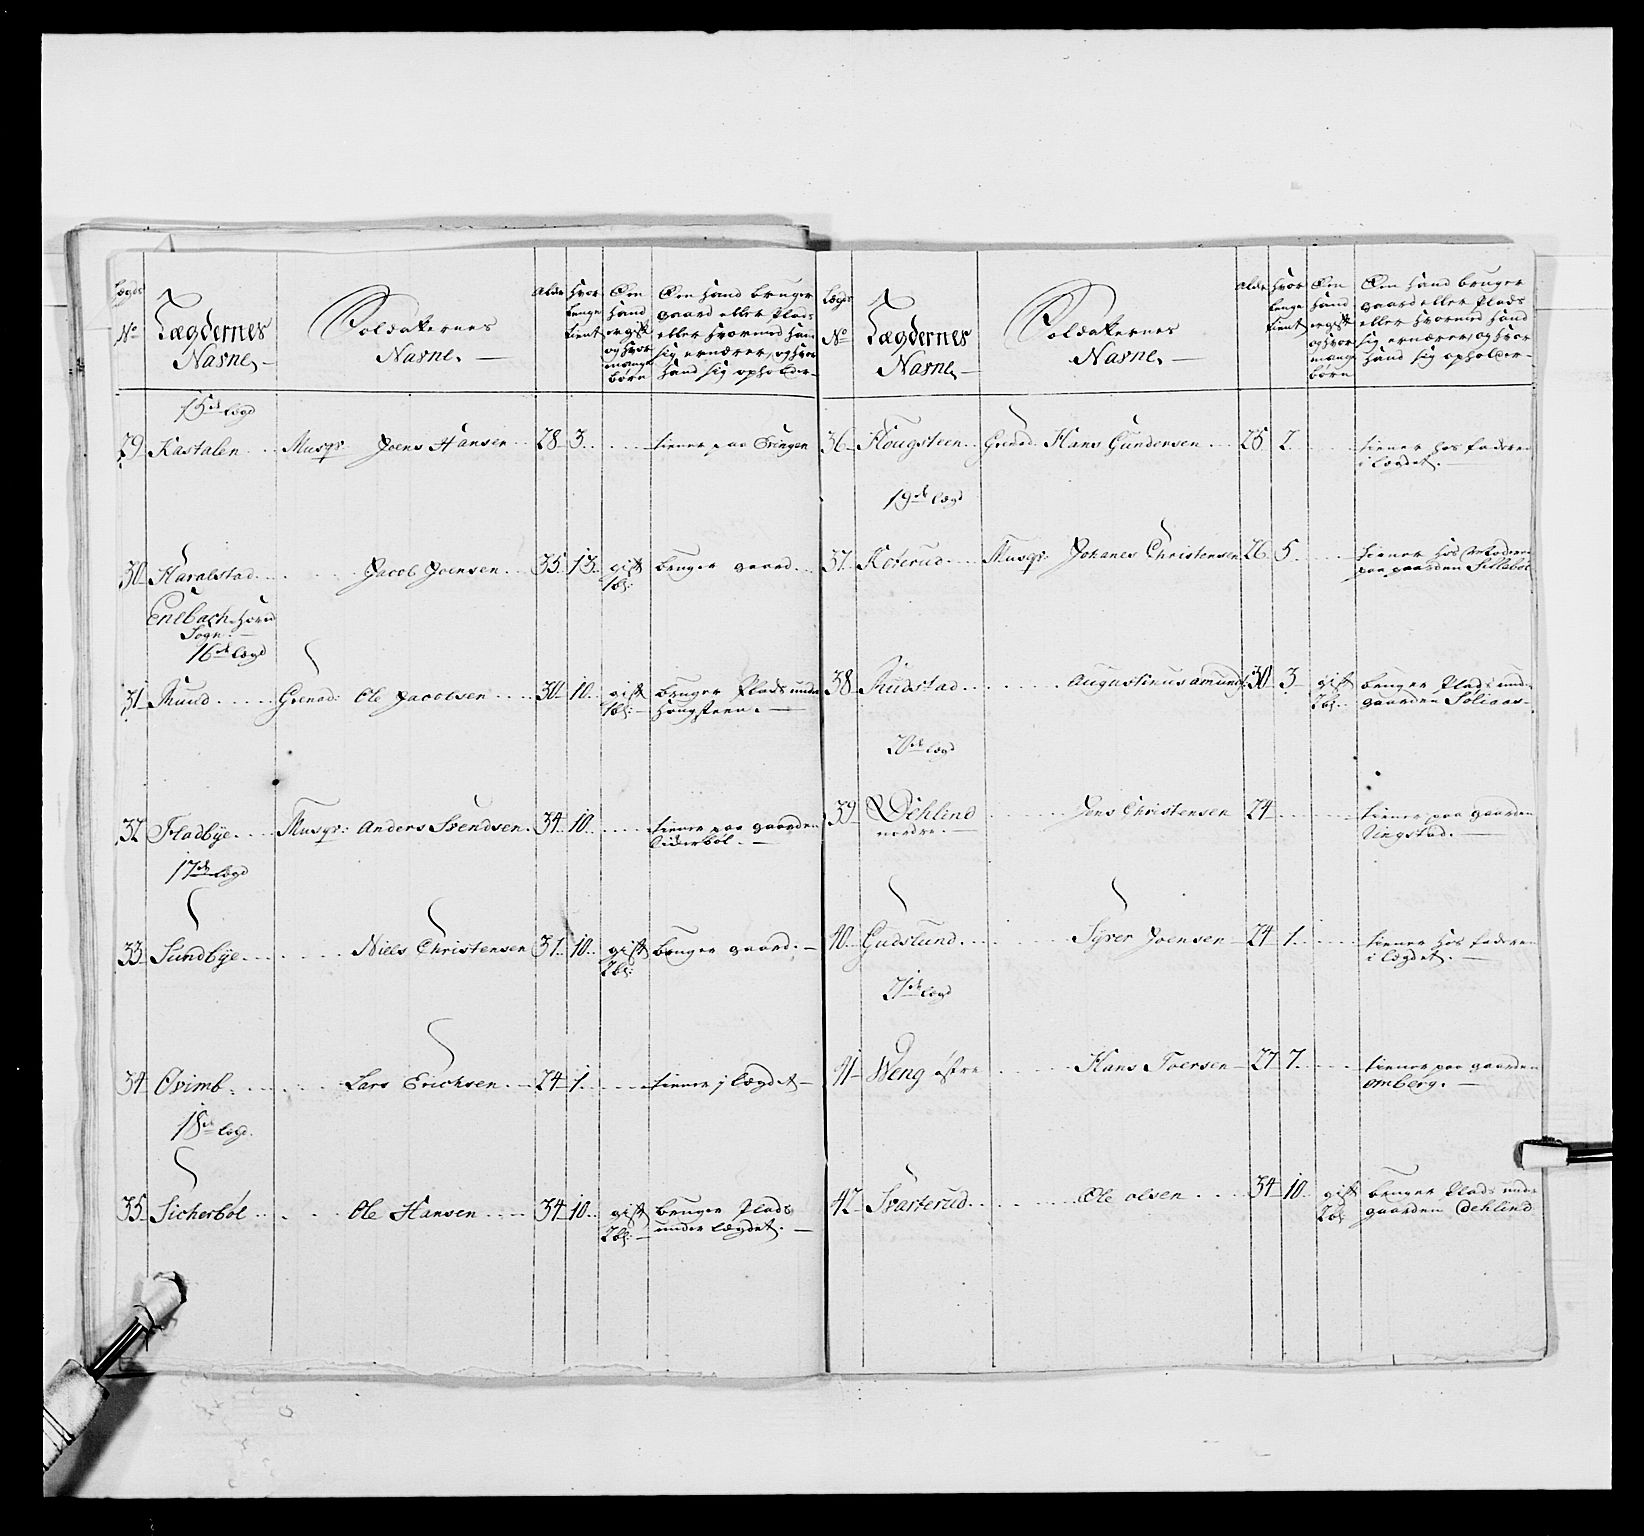 Lægds No
Lægdernes Nafne,
Soldaternes Nafne,
Alder
Hvor lenge tient
Om Hand er gift og hvor mange børn
Om Hand bruger gaard eller Plads eller hvormed Hand sig ernærer, og hvor Hand sig opholder
15de lægd
29 Kastalen Musqr: Joens Hansen 28 3 tiener paa Svingen
30 Haralstad Jacob Joensen 35 13 gift 1 b: bruger gaard
Enebach Hoved Sogn.
16de lægd
31 Ruud Grenad: Ole Jacobsen 30 10 gift 1 b: bruger Plads under Hougsteen.
32 Fladbye Musqr: Anders Svendsen 34 10 tiener paa gaarden Siderböl.
17de lægd
33 Sundbye Niels Christensen 31 10 gift 2 b: bruger gaard.
34 Qvimb Lars Erichsen 24 1 tiener j lægdet
18de lægd.
35 Sicherböl Ole Hansen 34 10 gift 2 b: bruger Plads under lægdet.
Lægds No
Lægdernes Nafne,
Soldaternes Nafne,
Alder
Hvor lenge tient
Om Hand er gift og hvor mange børn
Om Hand bruger gaard eller Plads eller hvormed Hand sig ernærer, og hvor Hand sig opholder
36 Hougsteen Grenad: Hans Gundersen 25 2 tiener hos faderen i lægdet.
19de lægd
37 Köterud Musqr: Johanes Christensen 26 5 tiener hos Moderen paa gaarden Silleböl
38 Rudstad Augustinus Amunds: 30 3 gift 2 b: bruger Plads under gaarden Soliaas
20de lægd
39 Öehlind nordre Jens Christensen 24 tiener paa gaarden Ringstad.
40 Gudslund Syver Joensen 24 1 tiener hos faderen i lægdet.
21de lægd
41 Weng östre Hans Toersen 27 7 tiener paa gaarden Omberg.
42 Svarterud Ole Olsen 34 10 gift 2 b: bruger Plads under gaarden Oehlind